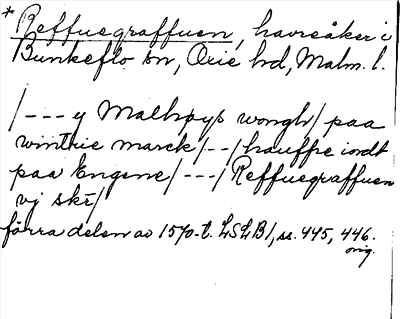 * Reffuegraffuen, havreåker i
Bunkeflo sn, Oxie hd, Malm. l.
/---y Malhøys wongh/ paa
wintrie marck/--/hauffre iordt
paa Engene/---/Reffuegraffuen
vj skr/
förra delen av 1570-t. LSLB1, ss. 445, 446.
orig.